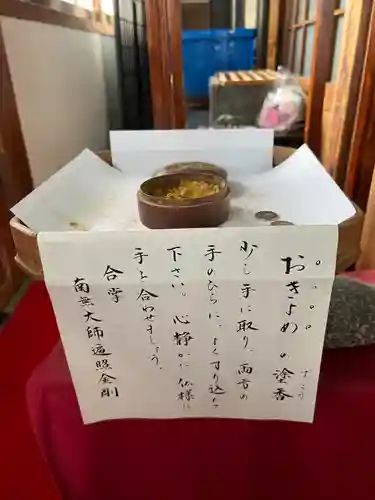 おきよめの塗香
ずこう
少し手に取り、両方の
手のひらに、よくすり込んで
下さい。心静かに仏様に
手を合わせましょう。
合掌
南無大師遍照金剛